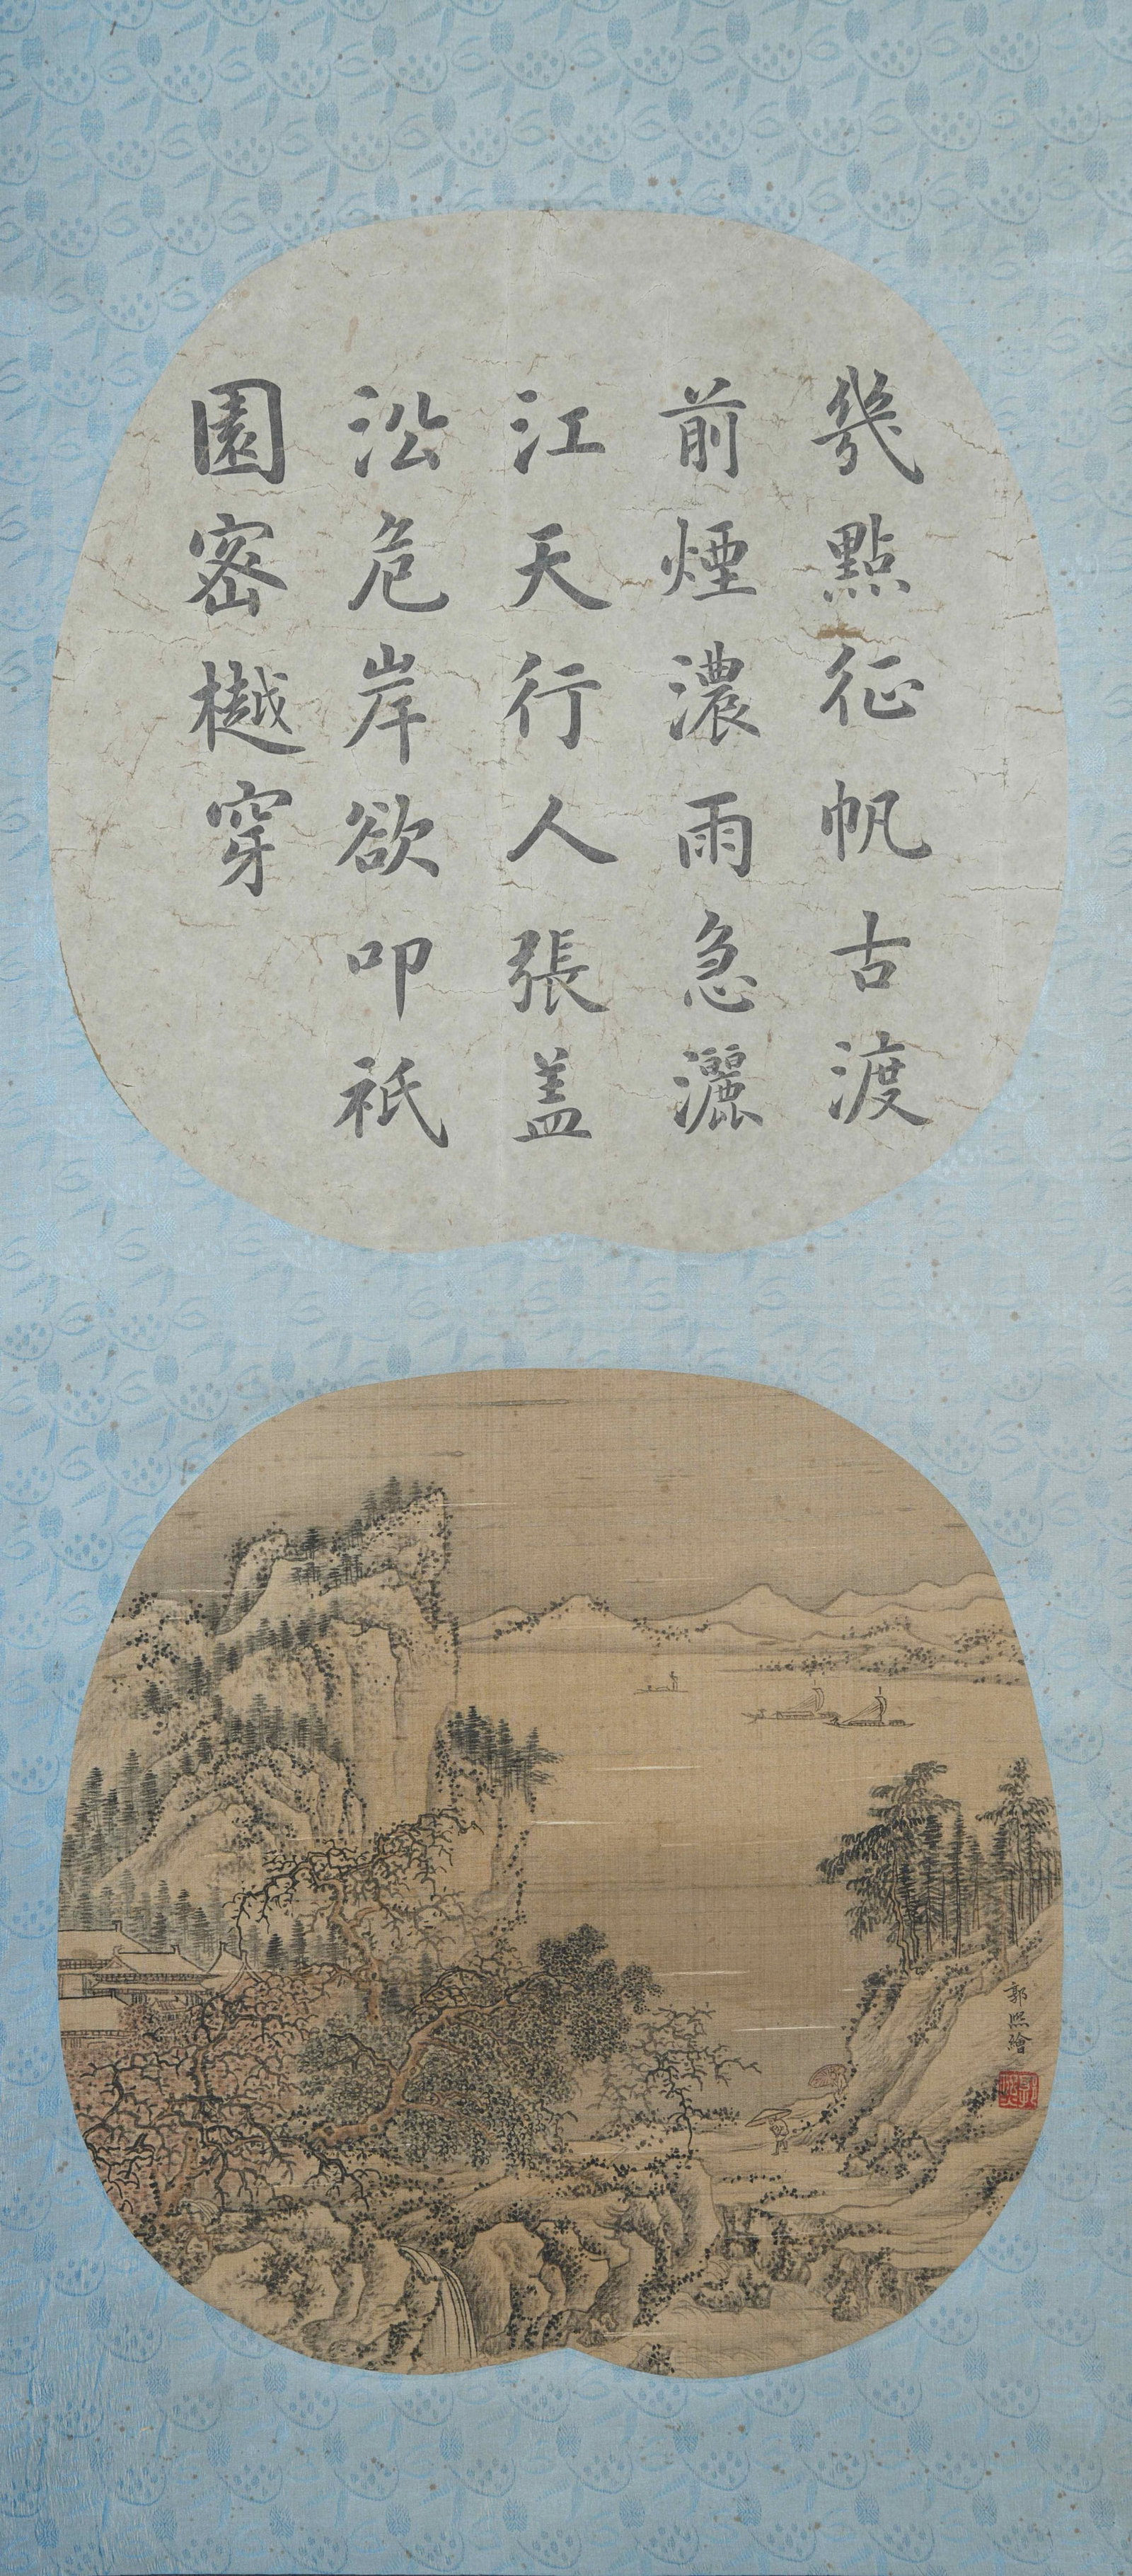 幾點征帆古渡
前煙濃雨急灑
江天行人張蓋
沿危岸欲叩祇
園密樾穿
郭熙繪